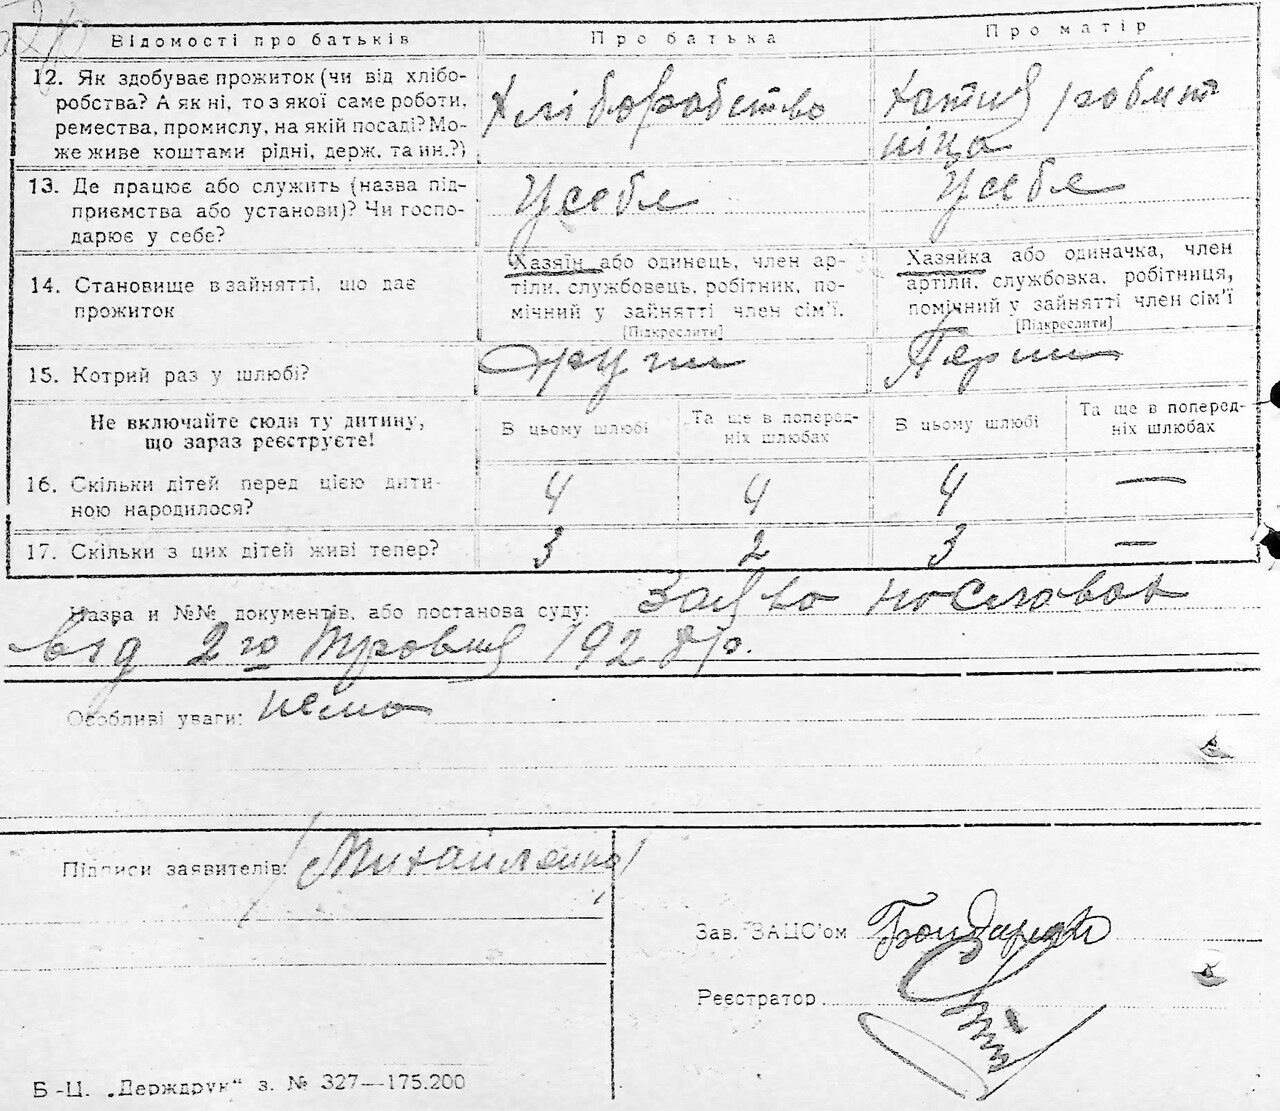 Відомості про батьків Про батька Про матір
12. Як здобуває прожиток (чи від хлібо-
робства? А як ні, то з якої саме роботи,
ремества, промислу, на якій посаді? Мо-
же живе коштами рідні, держ. та ин.?)
Хліборобство
Хатня робит
ніца
13. Де працює або служить (назва під-
приємства або установи)? Чи госпо-
дарює у себе?
У себе
У себе
14. Становище в зайнятті, що дає
прожиток
Хазяїн або одинець, член ар-
тіли, службовець, робітник, по-
мічний у зайнятті член сім'ї.
[Підкреслити]
Хазяйка або одиначка, член
артіли, службовка, робітниця,
помічний у зайнятті член сім'ї
[Підкреслити]
15. Котрий раз у шлюбі?
други
Перши
Не включайте сюди ту дитину,
що зараз реєструєте!
В цьому шлюбі
Та ще в поперед-
ніх шлюбах
В цьому шлюбі
Та ще в поперед-
ніх шлюбах
16. Скільки дітей перед цією дити-
ною народилося?
4 4 4 —
17. Скільки з цих дітей живі тепер?
3 2 3 —
Назва и №№ документів, або постанова суду: Заява
від 2го Травня 1928 р.
Особливі уваги: нема
Підписи заявителів: Михайленко
Зав. ЗАЦС'ом Бондаренко
Реєстратор
Б-Ц. „Держдрук“ з. № 327—175.200